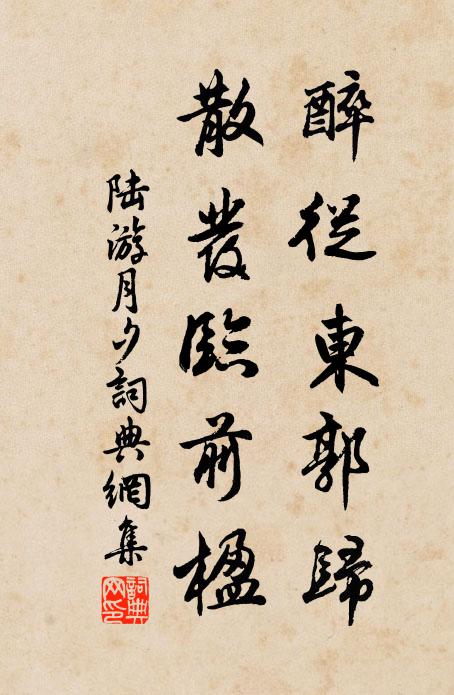 醉從東郭歸
散發臨前楹
陸游月夕詞典網集
詞典网印